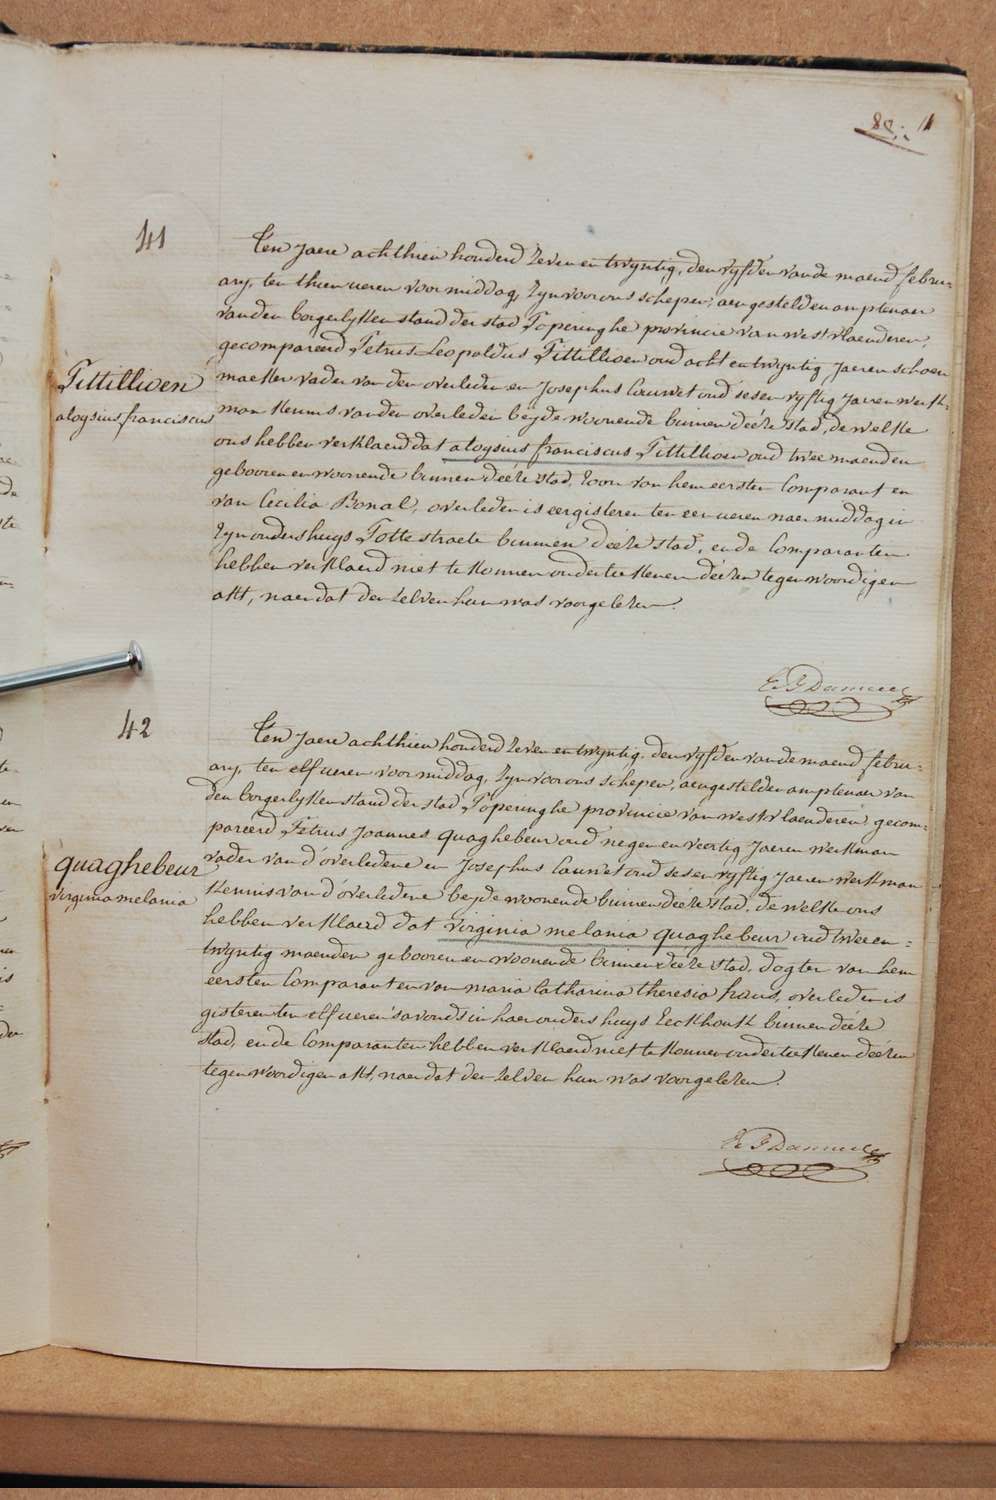 80.
11
41
Ten Jaere achthien honderd zeven en twyntig, den vyfden van de maend febru-
ary, ten thien ueren voormiddag, zyn voor ons schepen, aengestelden amptenaer
van den borgerlyken stand der stad Poperinghe provincie van westvlaenderen,
gecompareerd Petrus Leopoldus Pittillioen oud acht en twyntig Jaeren schoen
maeker vader van den overleden en Josephus Cauwet oud ses en vyftig Jaeren werk-
man kennis van den overleden beyde woonende binnen deéze stad, de welke
ons hebben verklaerd dat aloysius franciscus Pittillioen oud twee maenden
gebooren en woonende binnen deéze stad, zoon van hem eersten Comparant en
van Cecilia Bonal, overleden is eergisteren ten een ueren naermiddag in
zyn ouders huys Potte straete binnen deéze stad, en de Comparanten
hebben verklaerd niet te konnen onderteekenen deézen tegenwoordigen
akt, naer dat den zelven hun was voorgelezen.
Pittillioen
aloysius franciscus
42
Ten Jaere achthien honderd zeven en twyntig, den vyfden van de maend febru-
ary, ten elf ueren voormiddag, zyn voor ons schepen, aengestelden amptenaer van
den borgerlyken stand der stad Poperinghe provincie van westvlaenderen, gecom-
pareerd Petrus Joannes quaghebeur oud negen en veertig Jaeren werkman
vader van d'overledene en Josephus Cauwet oud ses en vyftig Jaeren werkman
kennis van d'overledene beyde woonende binnen deéze stad, de welke ons
hebben verklaerd dat virginia melania quaghebeur oud twee en-
twyntig maenden gebooren en woonende binnen deéze stad, dogter van hem
eersten Comparant en van maria Catharina theresia haus, overleden is
gisteren ten elf ueren 's avonds in haer ouders huys Eeckhoutk binnen deéze
stad, en de Comparanten hebben verklaerd niet te konnen onderteekenen deézen
tegenwoordigen akt, naer dat den zelven hun was voorgelezen.
quaghebeur
virginia melania